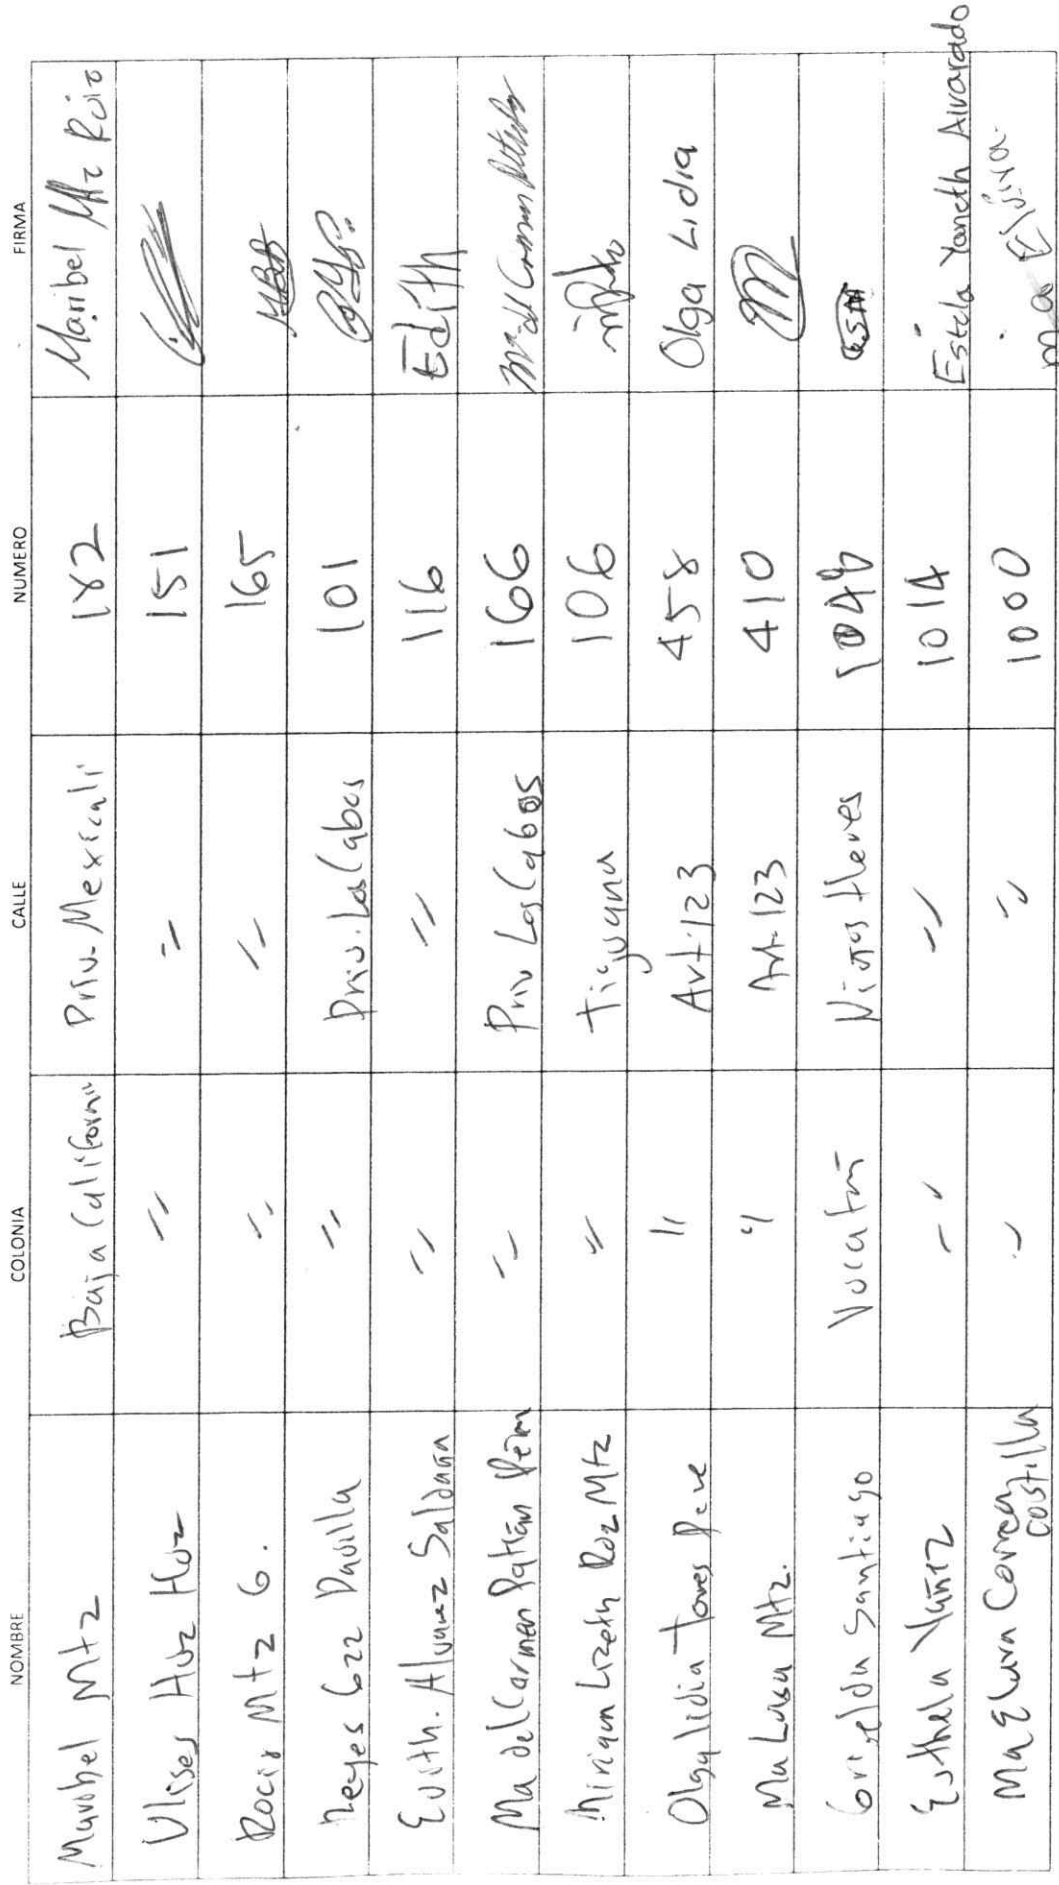 NOMBRE COLONIA CALLE NUMERO FIRMA
Maribel Mtz Baja California Priv. Mexicali 182 Maribel Mtz Ruiz
Ulises Hdz Hdz " " 151
Rocio Mtz G. " " 165
Reyes Gzz Davilla " Priv. Los Cabos 101
Edith. Alvarez Saldaña " " 116 Edith
Ma del Carmen Patlán " Priv Los Cabos 166 Ma del Carmen
Miriam Lizeth Rdz Mtz " Tijuana 106
Olga lidia Torres " Art 123 458 Olga Lidia
Ma Luisa Mtz. " Art-123 410
Griselda Santiago Yucatán Niños Heroes 1048 GSM
Esthela Yañez " " 1014 Estela Yaneth Alvarado
Ma Elvira Correa " " 1000 ma Elvira
Costilla